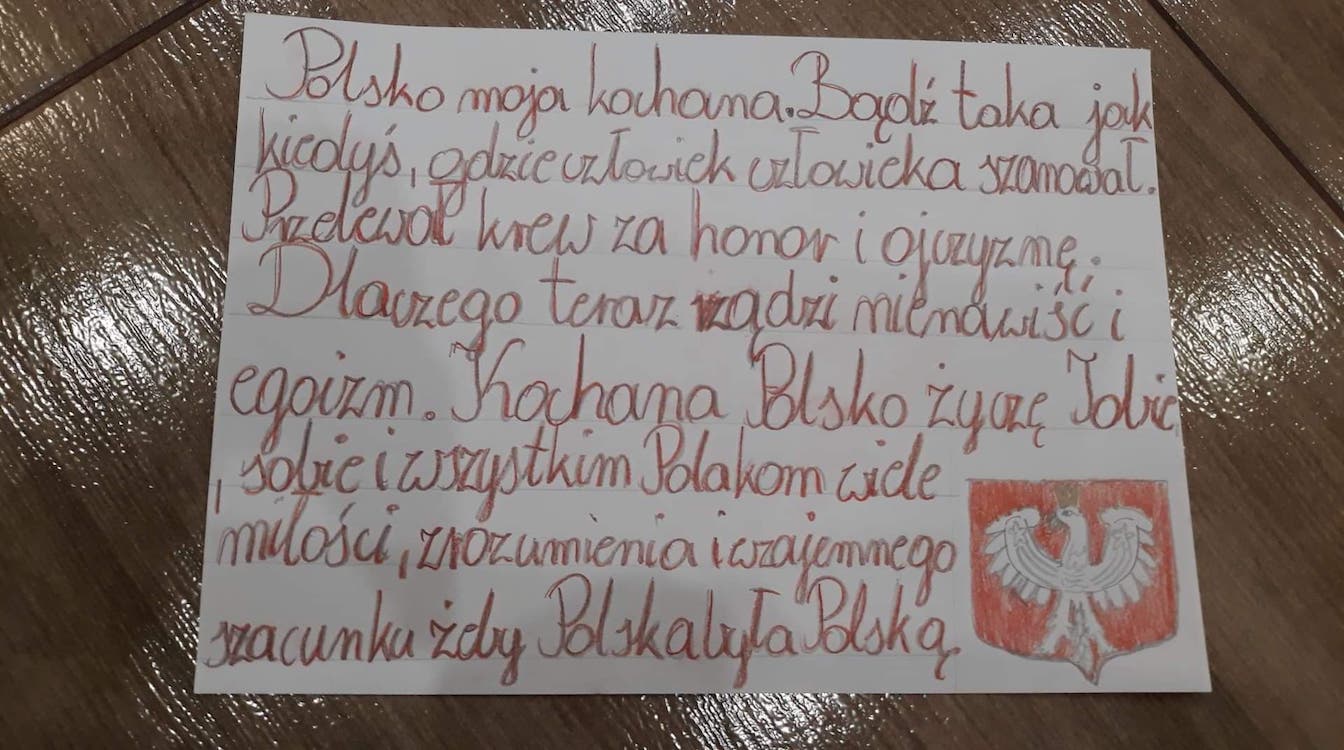 Polsko moja kochana. Bądź taka jak
kiedyś, gdzie człowiek człowieka szanował.
Przelewał krew za honor i ojczyznę.
Dlaczego teraz rządzi nienawiść i
egoizm. Kochana Polsko życzę Tobie
, sobie i wszystkim Polakom wiele
miłości, zrozumienia i wzajemnego
szacunku żeby Polska była Polską.